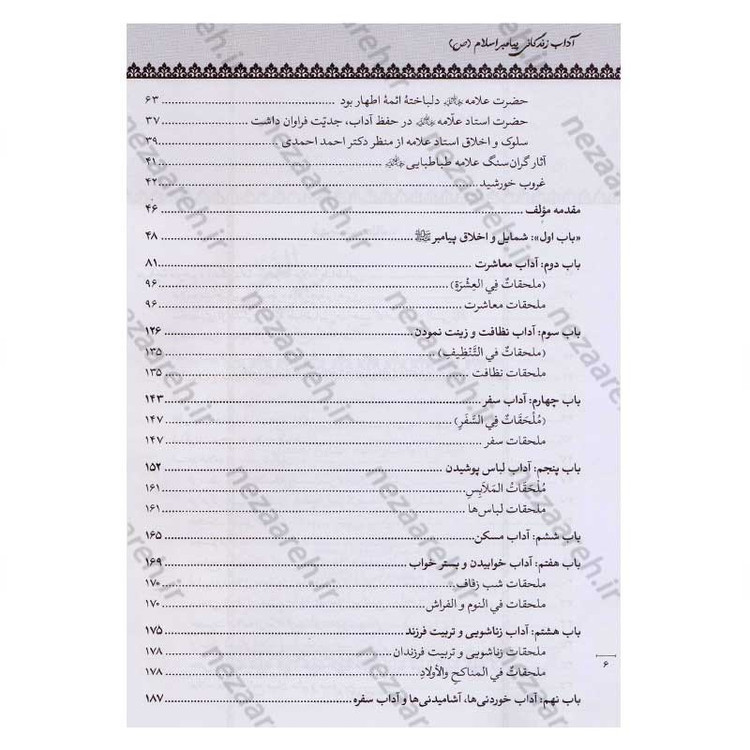 آداب زندگانی پیامبر اسلام (ص)
حضرت علامه دلباختۀ ائمۀ اطهار بود ........ ۶۳
حضرت استاد علّامه در حفظ آداب، جدیّت فراوان داشت ........ ۳۷
سلوک و اخلاق استاد علامه از منظر دکتر احمد احمدی ........ ۳۹
آثار گران‌سنگ علامه طباطبایی ........ ۴۱
غروب خورشید ........ ۴۲
مقدمه مؤلف ........ ۴۶
«باب اول»: شمایل و اخلاق پیامبر ﷺ ........ ۴۸
باب دوم: آداب معاشرت ........ ۸۱
(ملحقاتٌ فِي العِشْرَةِ) ........ ۹۶
ملحقات معاشرت ........ ۹۶
باب سوم: آداب نظافت و زینت نمودن ........ ۱۲۶
(ملحقاتٌ في التَّنْظِيفِ) ........ ۱۳۵
ملحقات نظافت ........ ۱۳۵
باب چهارم: آداب سفر ........ ۱۴۳
(مُلْحَقَاتٌ فِي السَّفَرِ) ........ ۱۴۷
ملحقات سفر ........ ۱۴۷
باب پنجم: آداب لباس پوشیدن ........ ۱۵۲
مُلْحَقَاتُ المَلَابِسِ ........ ۱۶۱
ملحقات لباس‌ها ........ ۱۶۱
باب ششم: آداب مسکن ........ ۱۶۵
باب هفتم: آداب خوابیدن و بستر خواب ........ ۱۶۹
ملحقات شب زفاف ........ ۱۷۰
ملحقات في النوم و الفراش ........ ۱۷۰
باب هشتم: آداب زناشویی و تربیت فرزند ........ ۱۷۵
ملحقات زناشویی و تربیت فرزندان ........ ۱۷۸
ملحقاتٌ في المناكحِ والأولادِ ........ ۱۷۸
باب نهم: آداب خوردنی‌ها، آشامیدنی‌ها و آداب سفره ........ ۱۸۷
۶
nezaareh.ir